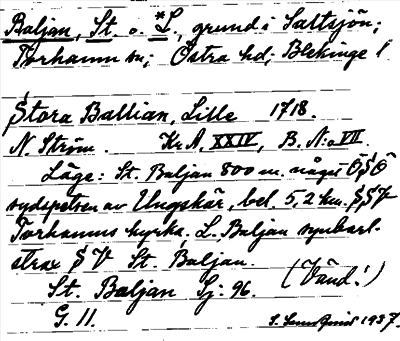 Baljan, St. o. *L., grund i Saltsjön;
Torhamn sn; Östra hd; Blekinge l
Stora Ballian, Lille 1718.
N. Ström. Kr. A. XXIV, B. N:o VII.
Läge: St. Baljan 800 m. något ÖSÖ
sydspetsen av Ungskär, bel. 5,2 km. SSV
Torhamns kyrka. L. Baljan synbarl.
strax SV St. Baljan.
(Vänd!)
St. Baljan Sj: 96.
G. 11.
1937.